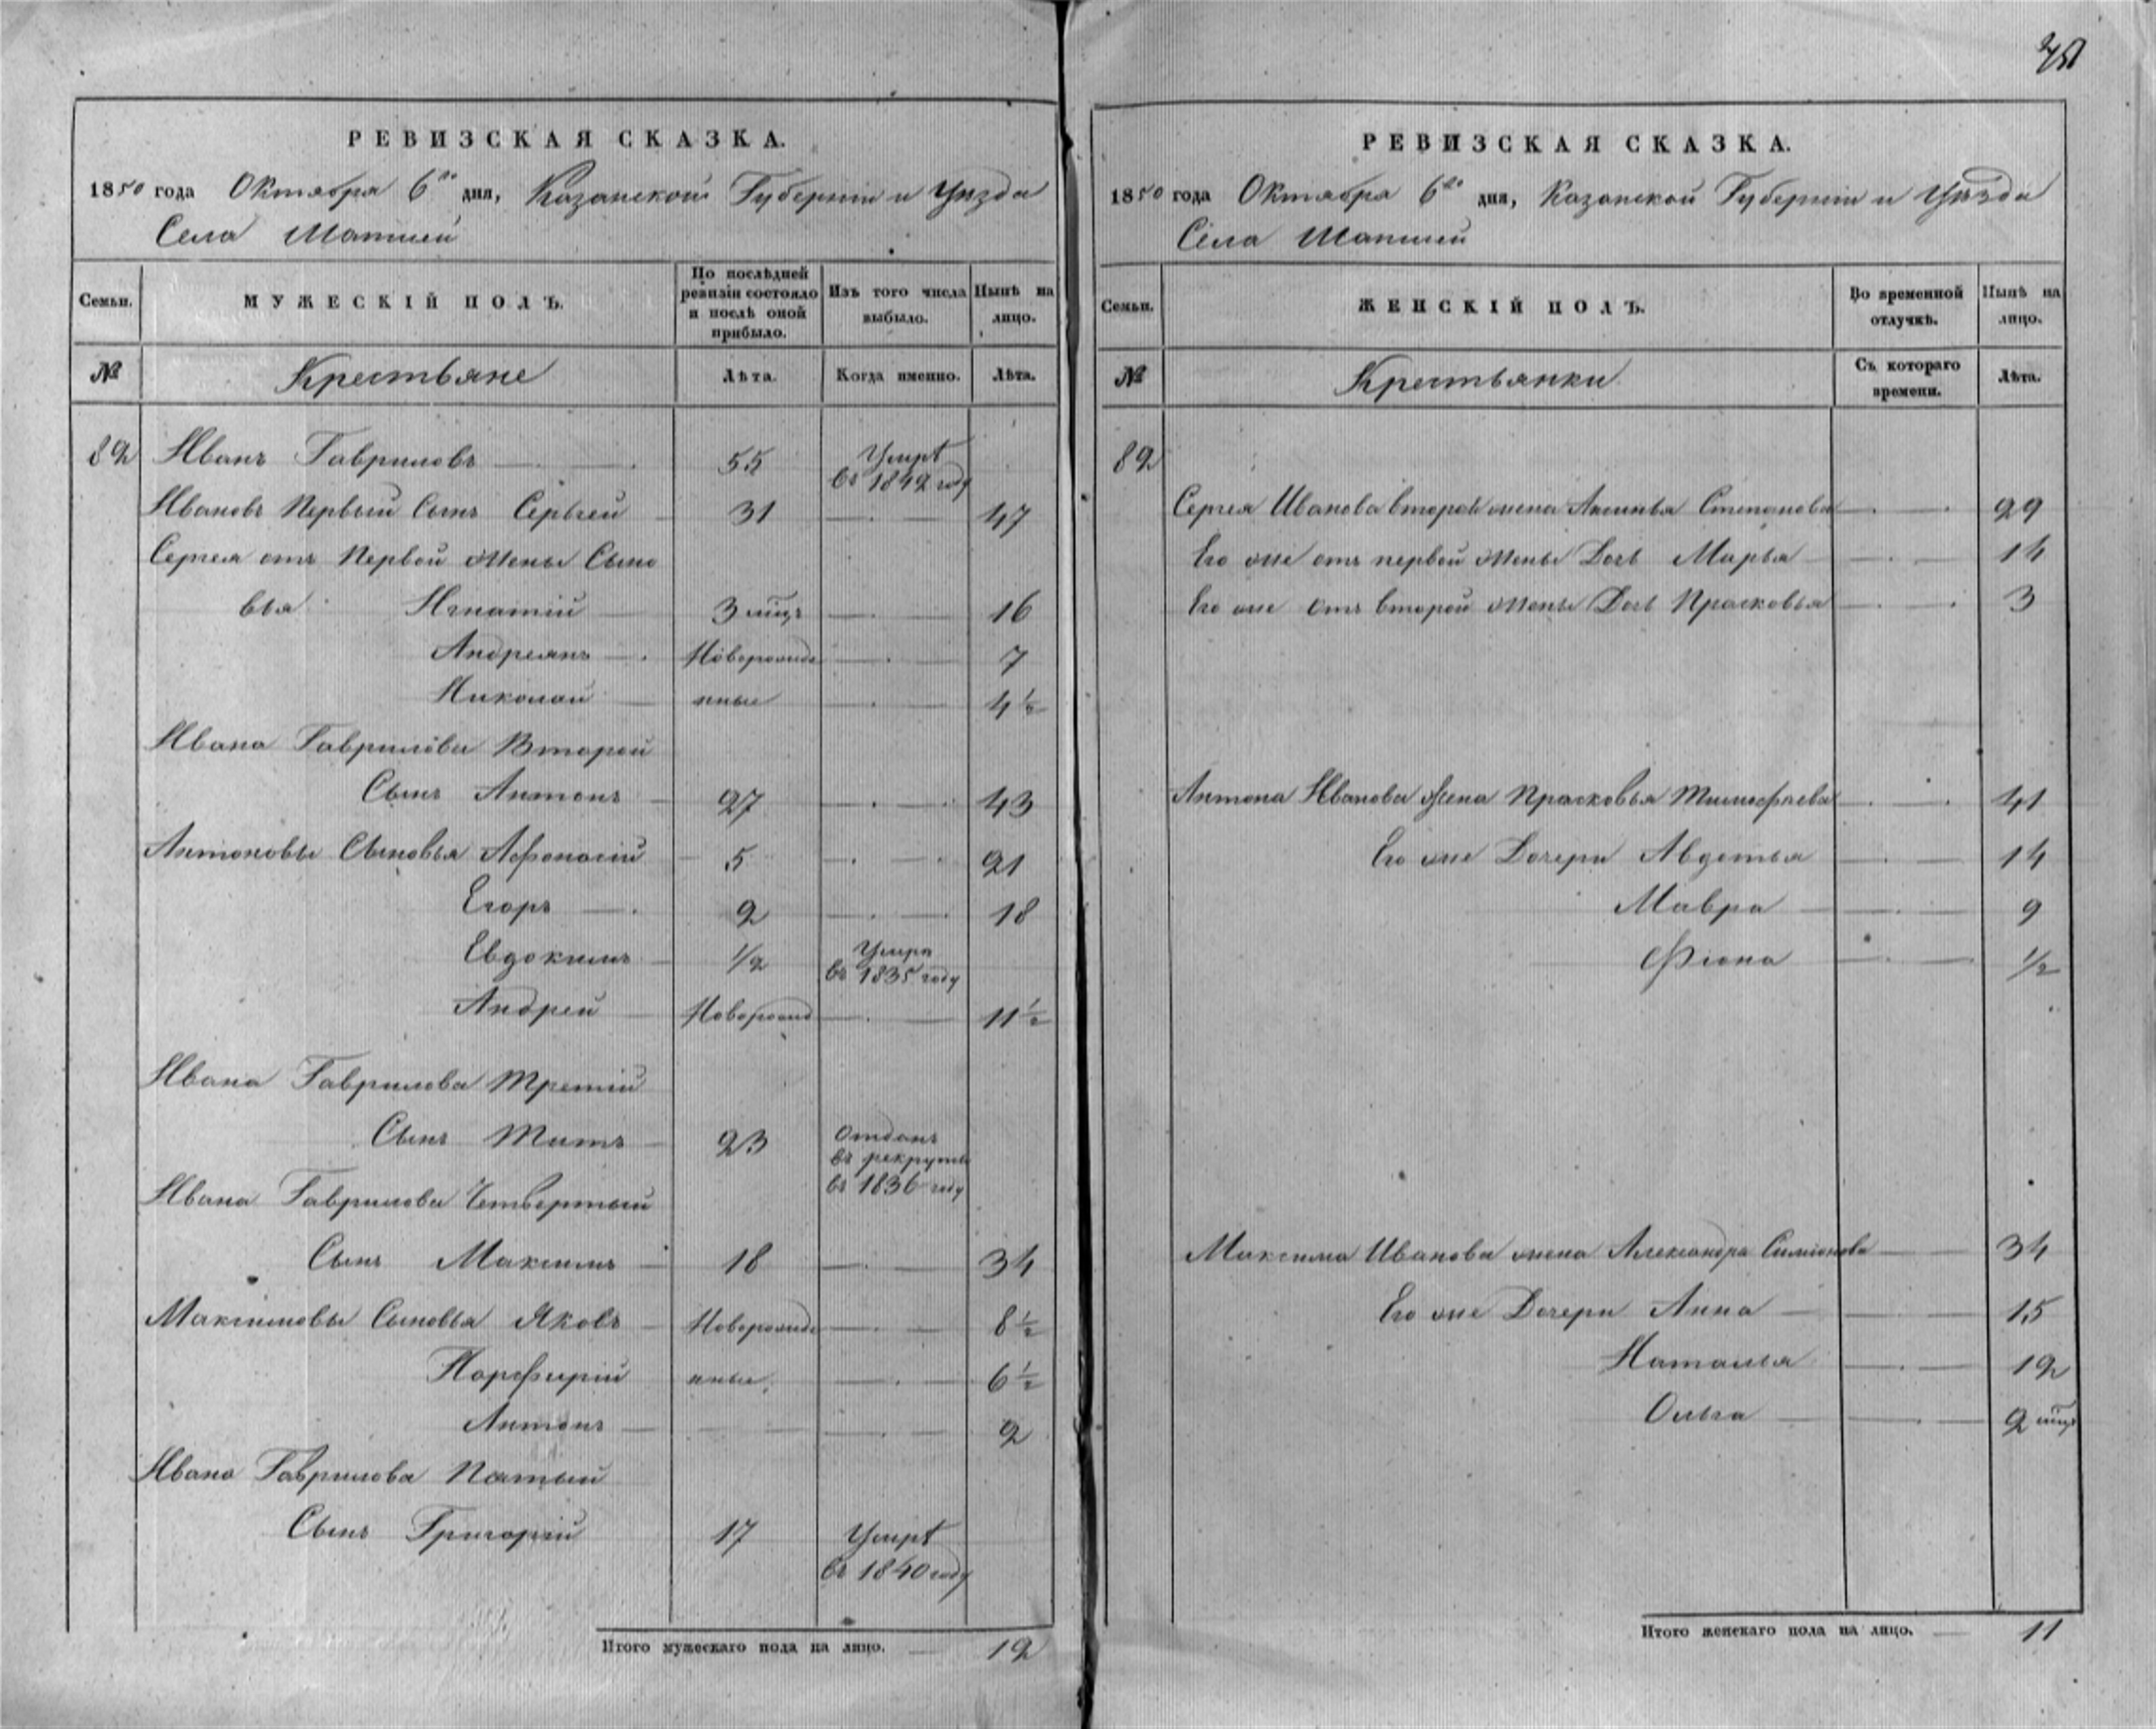 РЕВИЗСКАЯ СКАЗКА.
1850 года Октября 6го дня, Казанской Губерніи и Уѣзда
Села Шапшей
Семьи. МУЖЕСКІЙ ПОЛЪ. По послѣдней ревизіи состояло и послѣ оной прибыло. Изъ того числа выбыло. Нынѣ на лицо.
№ Крестьяне Лѣта. Когда именно. Лѣта.
82 Иванъ Гавриловъ 55 Умръ въ 1842 году
Ивановъ Первый Сынъ Сергѣй 31 47
Сергея отъ Первой Жены Сыно
вья Игнатій 3 мѣц. 16
Андреянъ Новорожде 7
Николай нные 4½
Ивана Гаврилова Второй
Сынъ Антонъ 27 43
Антоновы Сыновья Афонасій 5 21
Егоръ 2 18
Евдокимъ ½ Умръ въ 1835 году
Андрей Новорожд 11½
Ивана Гаврилова Третій
Сынъ Титъ 23 Отданъ въ рекруты въ 1836 году
Ивана Гаврилова Четвертый
Сынъ Максимъ 18 34
Максимовы Сыновья Яковъ Новорожде 8½
Порфирій нные 6½
Антонъ 2
Ивана Гаврилова Пятый
Сынъ Григорій 17 Умръ въ 1840 году
Итого мужескаго пола на лицо. 12
РЕВИЗСКАЯ СКАЗКА.
1850 года Октября 6го дня, Казанской Губерніи и Уѣзда
Села Шапшей
Семьи. ЖЕНСКІЙ ПОЛЪ. Во временной отлучкѣ. Нынѣ на лицо.
№ Крестьянки Съ котораго времени. Лѣта.
82
Сергея Иванова вторая жена Степанова 29
Его же отъ первой Жены Дочь Марья 14
Его же отъ второй жены Дочь Прасковья 3
Антона Иванова Жена Прасковья Тимофѣева 41
Его же Дочери Авдотья 14
Мавра 9
Фіона ½
Максима Иванова жена Александра Симіонова 34
Его же Дочери Анна 15
Наталья 12
Ольга 2 мѣц.
Итого женскаго пола на лицо. 11